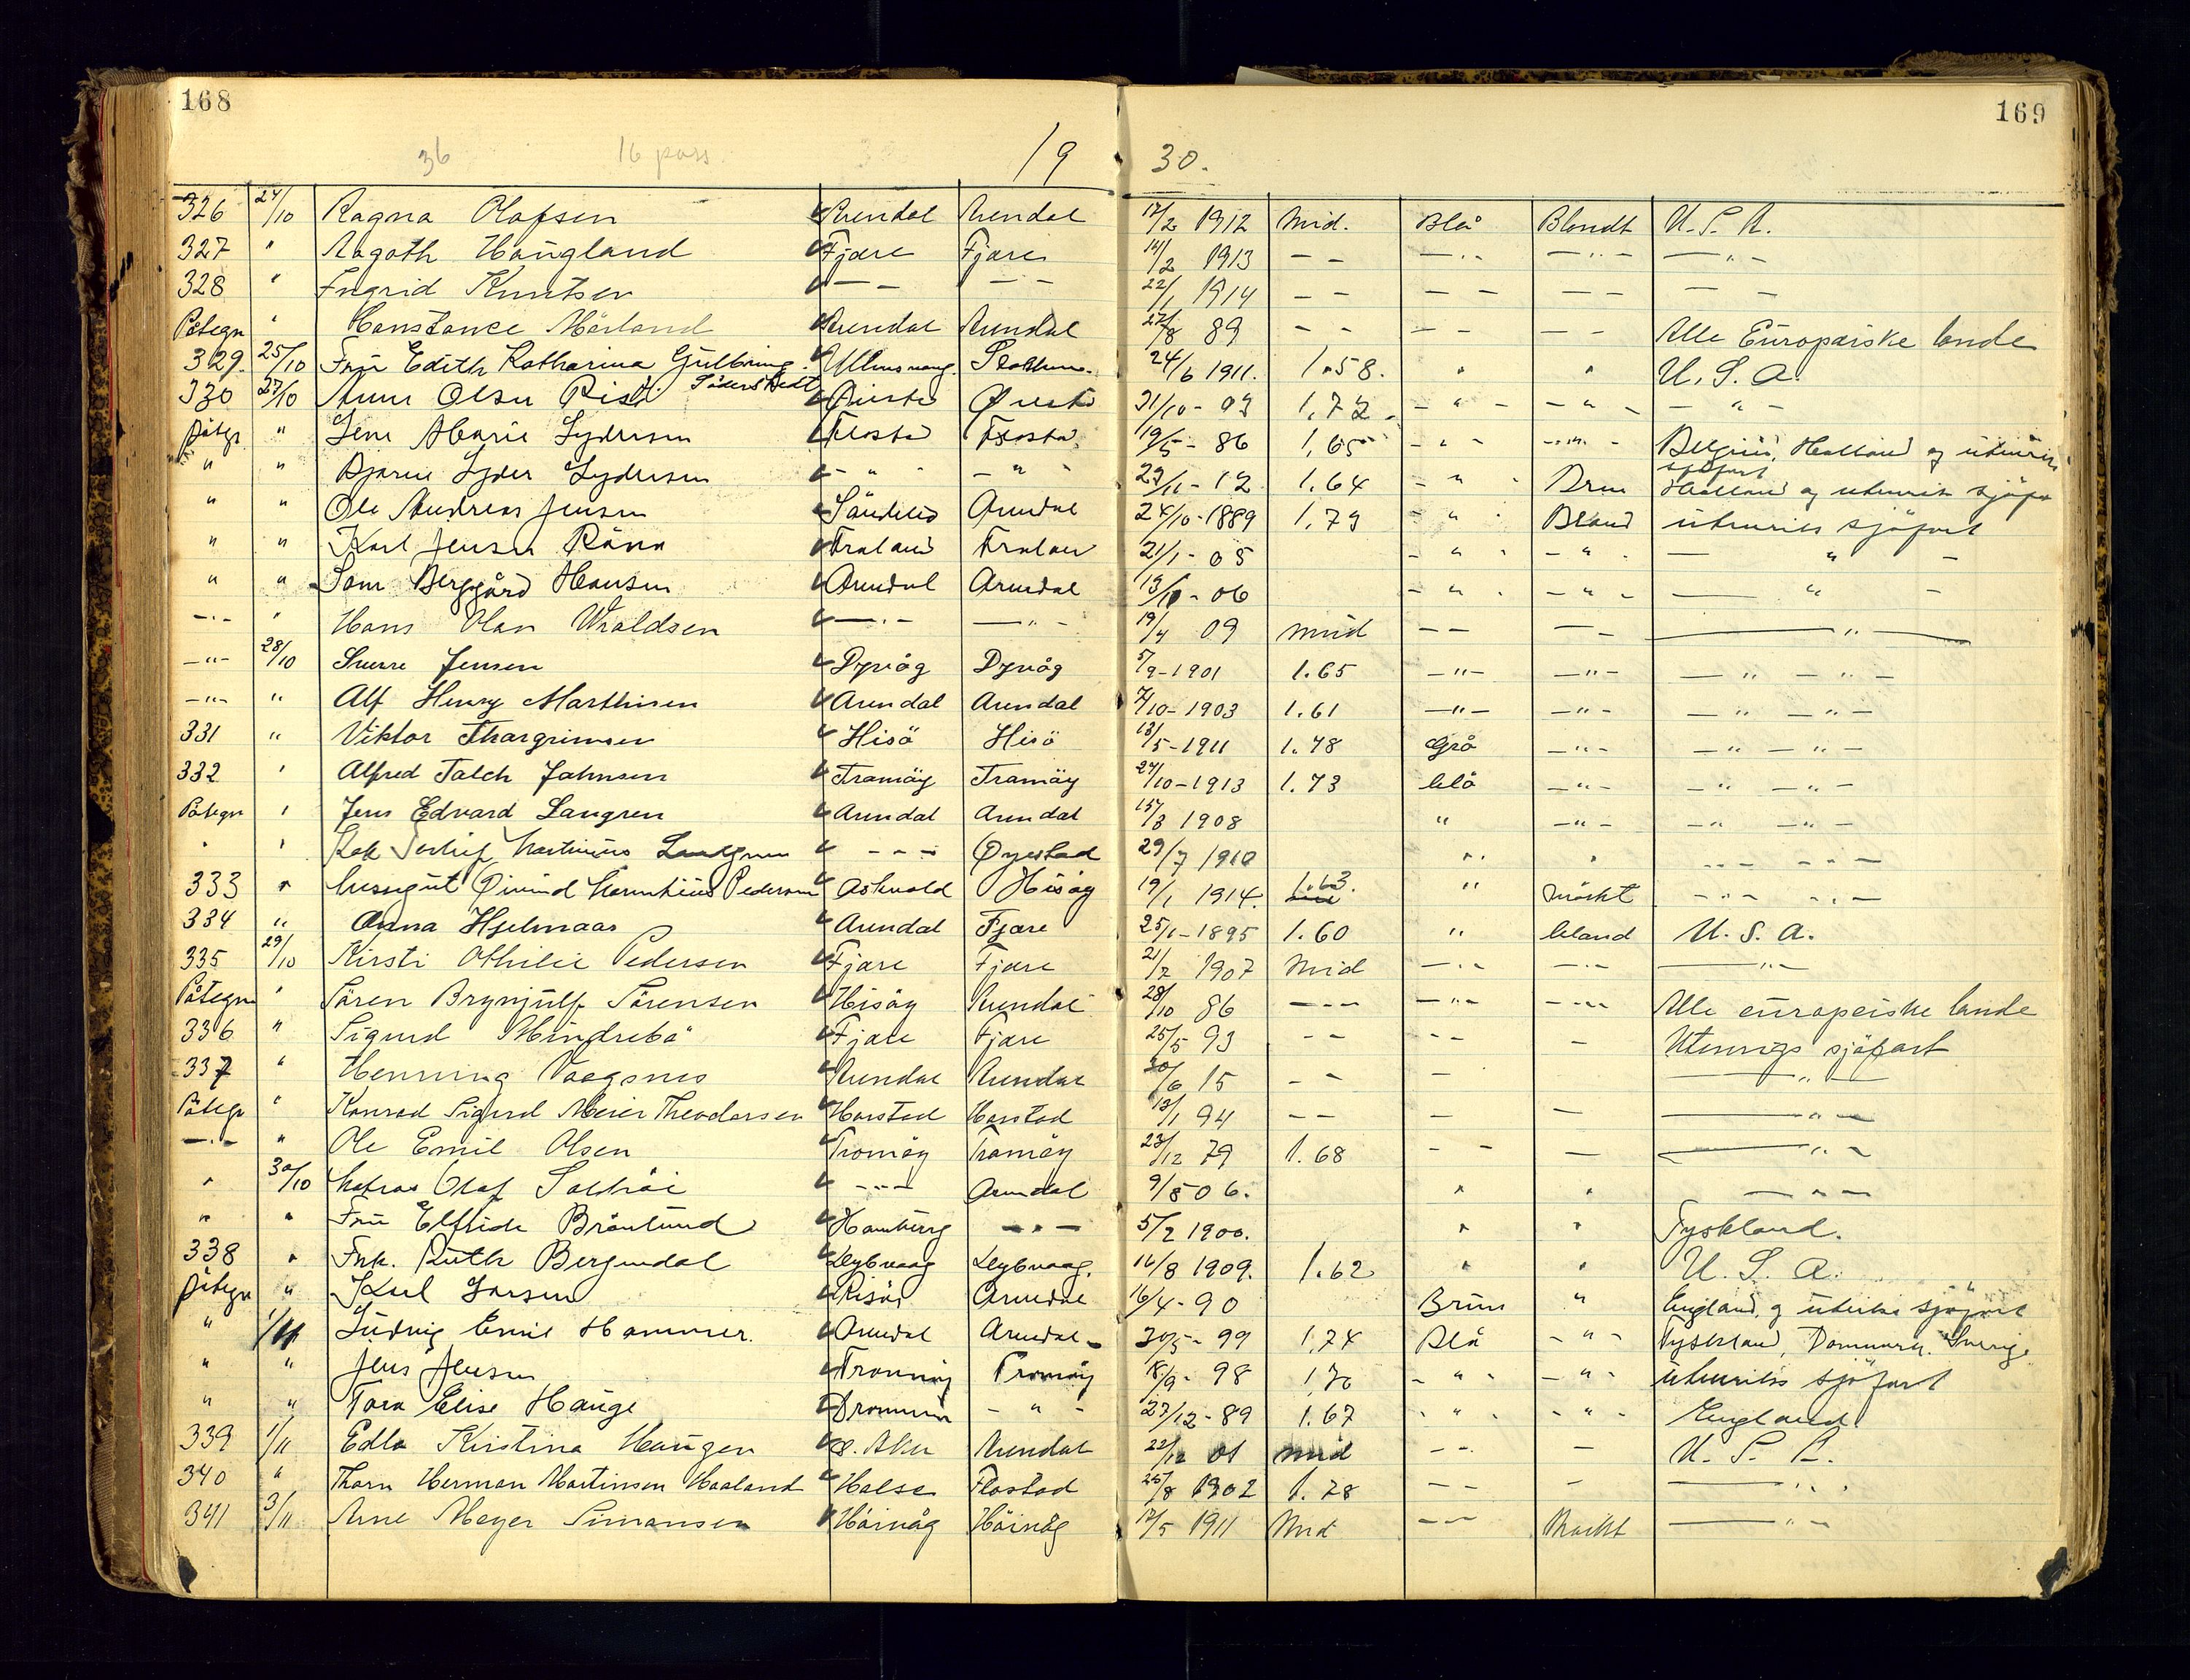 168
169
36 16 pass
19 30.
326 24/10 Ragna Olafsen Arendal Arendal 17/2 1912 Mid. Blå Blondt U.S.A.
327 " Aagoth Haugland Fjære Fjære 14/2 1913 — — — " — — " — — " —
328 " Ingrid Knutsen — — — — 22/1 1914 — — — — — — — —
Påtegn " Constance Mørland Arendal Arendal 27/8 89 — — — — — — Alle Europæiske lande
329. 25/10 Frü Edith Katharina Gülbring. 24/6 1911. 1.58. " " U.S.A.
Söderstedt
330 27/10 Olsen Rist 31/10 - 03 1,72 - " - - " - - " -
påtegn " Lene Marie Lydersen Flosta Flosta 19/5 - 86 1,65 - " - - " - Belgien, Holland og utenriks
sjöfart
" " Bjarne Lyder Lydersen - " - - " - 29/11 - 12 1.64 - " - Brun Holland og utenriks sjöfa
" " Ole Andreas Jensen Söndeled Arendal 24/10 - 1889 1.79 - " - Blond utenriks sjöfart
" " Karl Jensen 21/1 - 05 - " - - " - — " —
" " Berggård Hansen Arendal Arendal 13/10 - 06 - " - - " - — " —
— " — " Hans Olav — " — — " — 19/4 09 mid — — — — — " —
— " — 28/10 Sverre Jensen Dypvåg Dypvåg 5/9 - 1901 1.65 — " — — " — — " — " —
— " — " Alf Henry Marthinsen Arendal Arendal 7/10 - 1903 1.61 — " — — " — — " — " —
331 " Viktor Thorgrimsen Hisö Hisö 13/5 - 1911 1.78 Grå — " — — " — " —
332 " Alfred Falch Johnsen Tromöy Tromöy 24/10 - 1913 1.73 blå — " — — " — " —
Påtegn " Jens Edvard Langren Arendal Arendal 15/3 1908 " — " — — " — " —
" " - - - Øyestad 29/7 1910 " " — " — " —
333 " Øivind Pedersen Hisöy 19/1 1914. 1.63. " mörkt — " — " —
334 " Anna Hjelmaas Arendal Fjære 25/1 - 1895 1.60 " blond U.S.A.
335 29/10 Kirsti Othilie Pedersen Fjære Fjære 21/7 1907 Mid — " — — " — — " —
Påtegn " Sören Brynjülf Sörensen Hisöy Arendal 28/10 86 — " — — " — — " — Alle europeiske lande
336 " Sigurd Mindrebö Fjære Fjære 25/5 93 — — — — — Utenrigs sjöfart
337 " Henning Vaagsnes Arendal Arendal 30/6 15 — — — — " —
Påtegn " Konrad Sigurd Meier Theodorsen Harstad Harstad 13/1 94 — — — — — " —
— " — " Ole Emil Olsen Tromöy Tromöy 23/12 79 1.68 — — — — " —
" 30/10 Matros Olaf — " — Arendal 9/8 06. " " — " —
" " Frü Elfride Brönlund Hamburg — " — 5/2 1900. " " Tyskland.
338 " Frk. Ruth Bergendal 16/8 1909. 1.62 " " U.S.A.
påtegn " Karl Larsen Risör Arendal 16/4 - 90 Brün " England og utenriks sjöfart
" 1/11 Ludvig Emil Hammer. Arendal Arendal 30/5 - 99 1,74 Blå - " - Tyskland, Danmark. Sverig.
" " Jens Jensen Tromöy Tromöy 18/9 - 98 1,70 - " - - " - utenriks sjöfart
" " Tora Elise Hauge Drammen - " - 27/12 - 89 1.67 - " - - " - England
339 1/11 Edla Kirstina Haugen Ø. Aker Arendal 22/12 01 mid — — — U.S.A.
340 " Thorn Herman Martinsen Haaland Halse Flostad 25/8 1902 1.78 — — — — " —
341 3/11 Arne Meyer Simonsen Höivåg Höivåg 17/5 1911 Mid — — Mörkt — " —